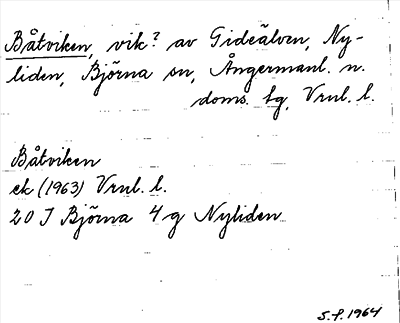 Båtviken, vik? av Gideälven, Ny-
liden, Björna sn, Ångermanl. n.
doms. sg, Vrnl. l.
Båtviken
ek (1963) Vrnl. l.
20 J Björna 4 g Nyliden
S.F. 1964